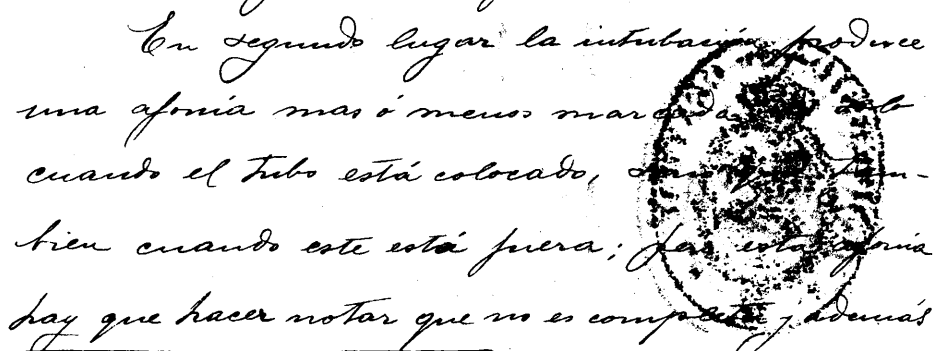 En segundo lugar la intubación produce
una afonia mas ó menos marcada solo
cuando el tubo está colocado, sino que tam-
bien cuando este está fuera; pero esta afonia
hay que hacer notar que no es completa y además